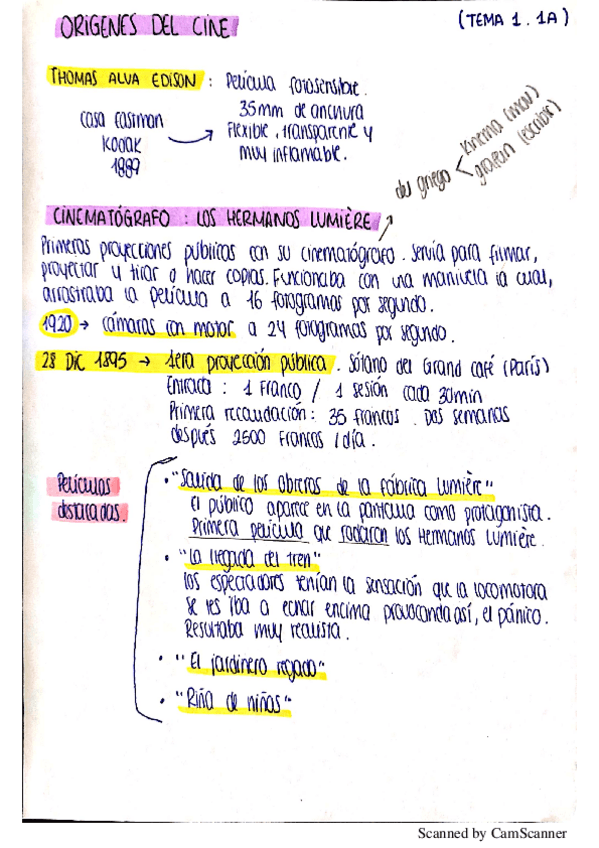 ORIGENES DEL CINE
(TEMA 1. 1A)
THOMAS ALVA EDISON : Película fotosensible.
35mm de anchura
Flexible, transparente y
muy inflamable.
Casa Eastman
Kodak
1889
del griego
kinema (mov)
grafein (escribir)
CINEMATÓGRAFO : LOS HERMANOS LUMIÈRE
Primeras proyecciones públicas con su cinematógrafo. Servía para filmar,
proyectar y tirar o hacer copias. Funcionaba con una manivela la cual,
arrastraba la película a 16 fotogramas por segundo.
1920 → cámaras con motor a 24 fotogramas por segundo.
28 DIC 1895 → 1era proyección pública. Sótano del Grand café (París)
Entrada : 1 Franco / 1 sesión cada 30min
Primera recaudación: 35 francos. Dos semanas
después 2500 Francos / día.
Películas
destacadas.
• "Salida de los obreros de la fábrica Lumière"
El público aparece en la pantalla como protagonista.
Primera película que rodaron los Hermanos Lumière.
• "La llegada del tren"
Los espectadores tenían la sensación que la locomotora
se les iba a echar encima provocando así, el pánico.
Resultaba muy realista.
• "El jardinero regado"
• "Riña de niños"
Scanned by CamScanner